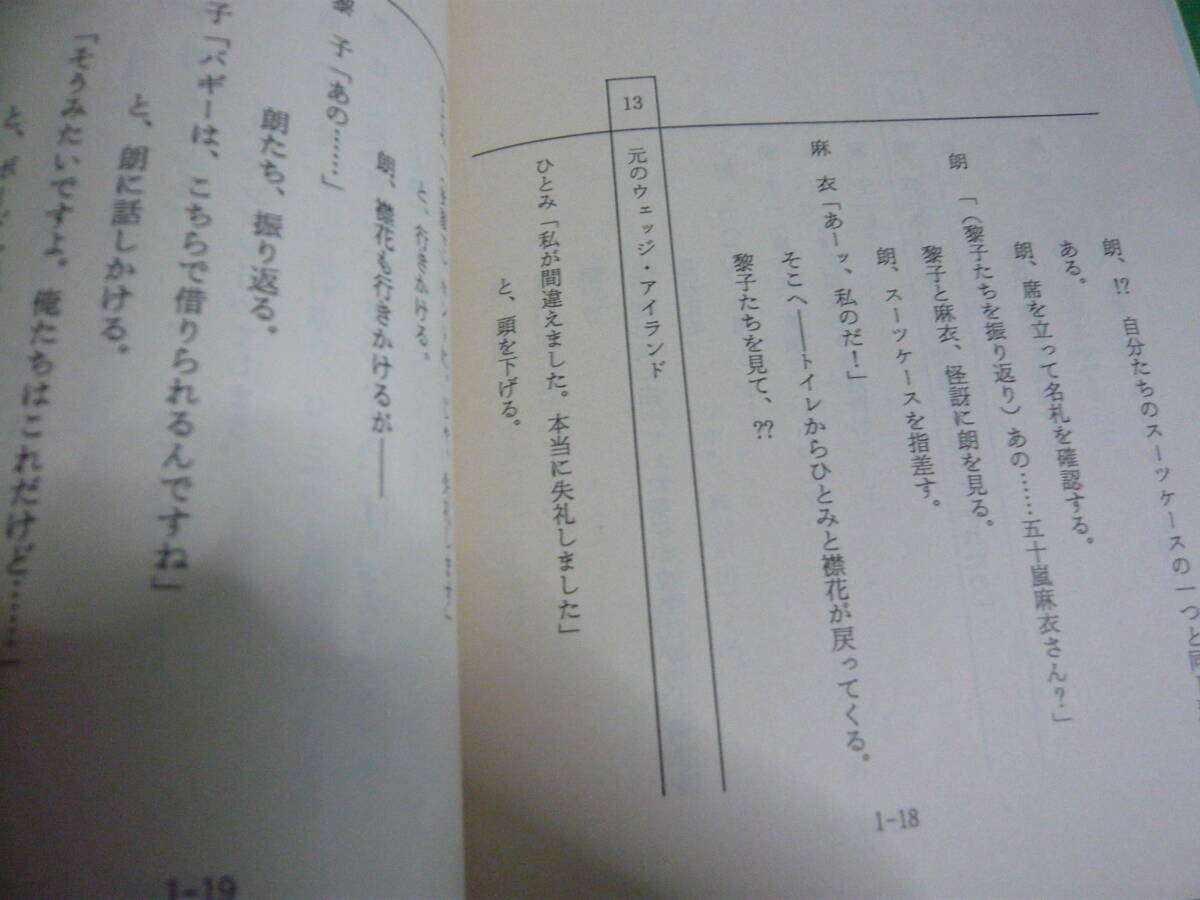 朗、!? 自分たちのスーツケースの一つと同じ
ある。
朗、席を立って名札を確認する。
朗 「(黎子たちを振り返り)あの……五十嵐麻衣さん?」
黎子と麻衣、怪訝に朗を見る。
朗、スーツケースを指差す。
麻 衣「あーッ、私のだ!」
そこへ――トイレからひとみと襟花が戻ってくる。
黎子たちを見て、??
13 元のウェッジ・アイランド
ひとみ「私が間違えました。本当に失礼しました」
と、頭を下げる。
1-18
と、行きかける。
朗、襟花も行きかけるが――
黎 子「あの……」
朗たち、振り返る。
子「バギーは、こちらで借りられるんですね」
と、朗に話しかける。
「そうみたいですよ。俺たちはこれだけど……」
と、
1-19